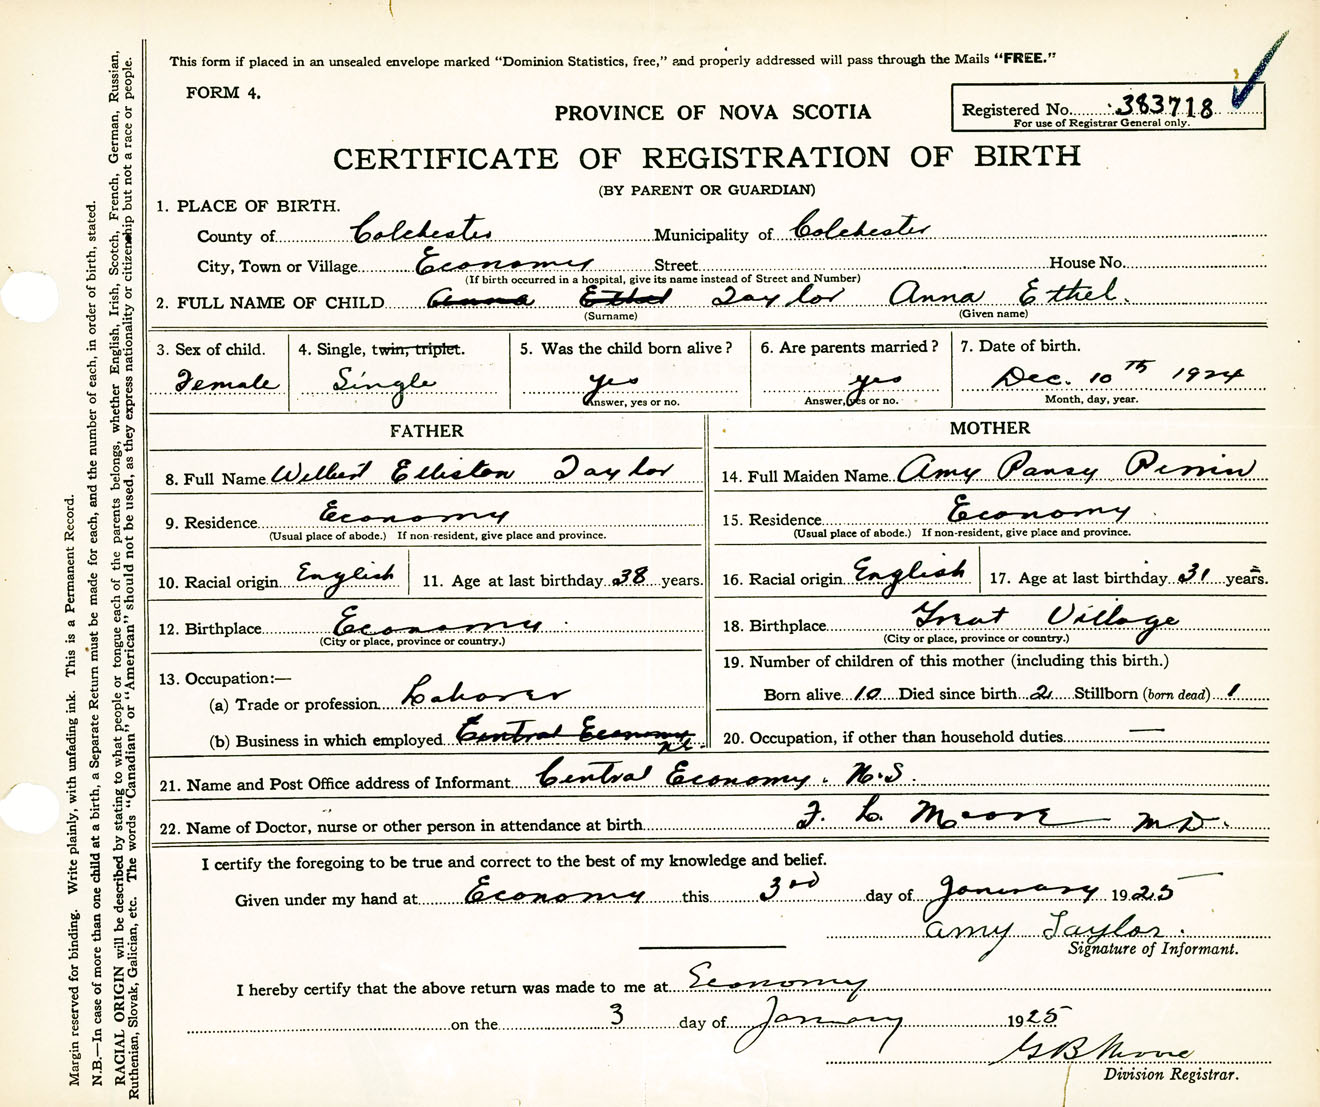 This form if placed in an unsealed envelope marked "Dominion Statistics, free," and properly addressed will pass through the Mails "FREE."
FORM 4.
PROVINCE OF NOVA SCOTIA
Registered No. 383718
For use of Registrar General only.
CERTIFICATE OF REGISTRATION OF BIRTH
(BY PARENT OR GUARDIAN)
1. PLACE OF BIRTH.
County of Colchester Municipality of Colchester
City, Town or Village Economy Street House No.
(If birth occurred in a hospital, give its name instead of Street and Number)
2. FULL NAME OF CHILD Anna Ethel Taylor Anna Ethel.
(Surname) (Given name)
3. Sex of child. 4. Single, twin, triplet. 5. Was the child born alive? 6. Are parents married? 7. Date of birth.
Female Single yes yes Dec. 10th 1924
Answer, yes or no. Answer, yes or no. Month, day, year.
FATHER MOTHER
8. Full Name Wilbert Elliston Taylor 14. Full Maiden Name Amy Pansy
9. Residence Economy 15. Residence Economy
(Usual place of abode.) If non-resident, give place and province. (Usual place of abode.) If non-resident, give place and province.
10. Racial origin English 11. Age at last birthday 38 years. 16. Racial origin English 17. Age at last birthday 31 years.
12. Birthplace Economy 18. Birthplace Great Village
(City or place, province or country.) (City or place, province or country.)
13. Occupation:— 19. Number of children of this mother (including this birth.)
(a) Trade or profession Laborer Born alive 10 Died since birth 2 Stillborn (born dead) 1
(b) Business in which employed Central Economy 20. Occupation, if other than household duties —
21. Name and Post Office address of Informant Central Economy. N.S.
22. Name of Doctor, nurse or other person in attendance at birth F. L. Moore M.D.
I certify the foregoing to be true and correct to the best of my knowledge and belief.
Given under my hand at Economy this 3rd day of Janurary 1925
Amy Taylor.
Signature of Informant.
I hereby certify that the above return was made to me at Economy
on the 3 day of January 1925
G B Moore
Division Registrar.
Margin reserved for binding. Write plainly, with unfading ink. This is a Permanent Record.
N.B.—In case of more than one child at a birth, a Separate Return must be made for each, and the number of each, in order of birth, stated.
RACIAL ORIGIN will be described by stating to what people or tongue each of the parents belongs, whether English, Irish, Scotch, French, German, Russian,
Ruthenian, Slovak, Galician, etc. The words "Canadian" or "American" should not be used, as they express nationality or citizenship but not a race or people.